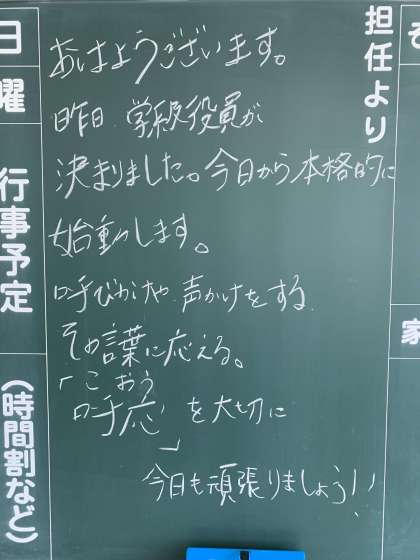 担任より
おはようございます。
昨日、学級役員が
決まりました。今日から本格的に
始動します。
呼びかけや、声かけをする
その言葉に応える。
「こおう
呼応」を大切に
今日も頑張りましょう!!
日
曜
行事予定
(時間割など)
家